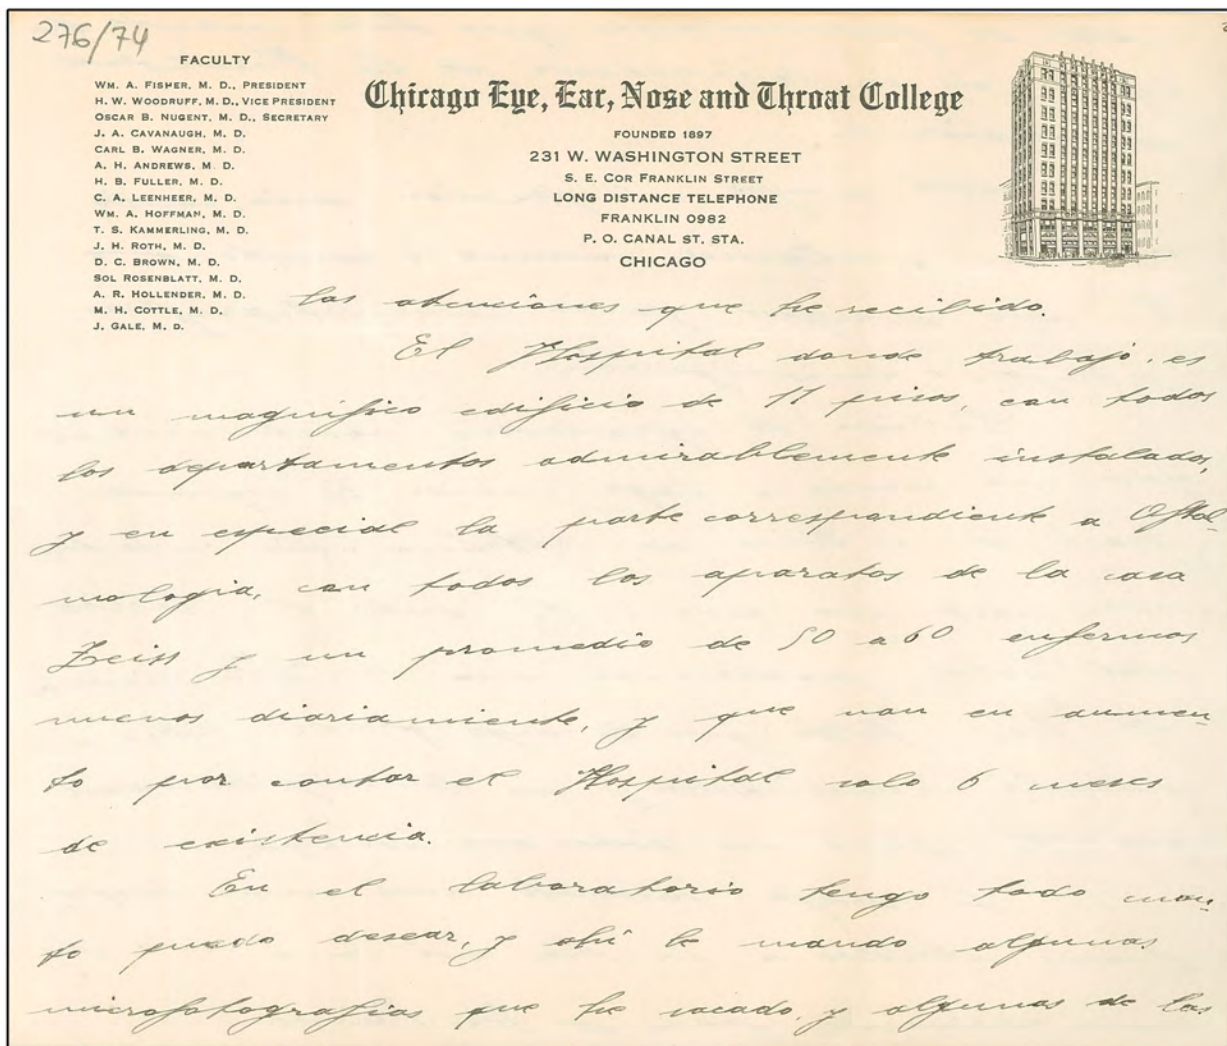 276/74
2
FACULTY
WM. A. FISHER, M. D., PRESIDENT
H. W. WOODRUFF, M. D., VICE PRESIDENT
OSCAR B. NUGENT, M. D., SECRETARY
J. A. CAVANAUGH, M. D.
CARL B. WAGNER, M. D.
A. H. ANDREWS, M. D.
H. B. FULLER, M. D.
C. A. LEENHEER, M. D.
WM. A. HOFFMAN, M. D.
T. S. KAMMERLING, M. D.
J. H. ROTH, M. D.
D. C. BROWN, M. D.
SOL ROSENBLATT, M. D.
A. R. HOLLENDER, M. D.
M. H. COTTLE, M. D.
J. GALE, M. D.
Chicago Eye, Ear, Nose and Throat College
FOUNDED 1897
231 W. WASHINGTON STREET
S. E. COR FRANKLIN STREET
LONG DISTANCE TELEPHONE
FRANKLIN 0982
P. O. CANAL ST. STA.
CHICAGO
las atenciones que he recibido.
El Hospital donde trabajo, es
un magnífico edificio de 11 pisos, con todos
los departamentos admirablemente instalados,
y en especial la parte correspondiente a Oftal-
mologia, con todos los aparatos de la casa
Zeiss y un promedio de 50 a 60 enfermos
nuevos diariamiente, y que van en aumen-
to por contar el Hospital solo 6 meses
de existencia.
En el laboratorio tengo todo cuan-
to puedo desear, y ahí le mando algunas
microfotografias que he sacado, y algunas de las